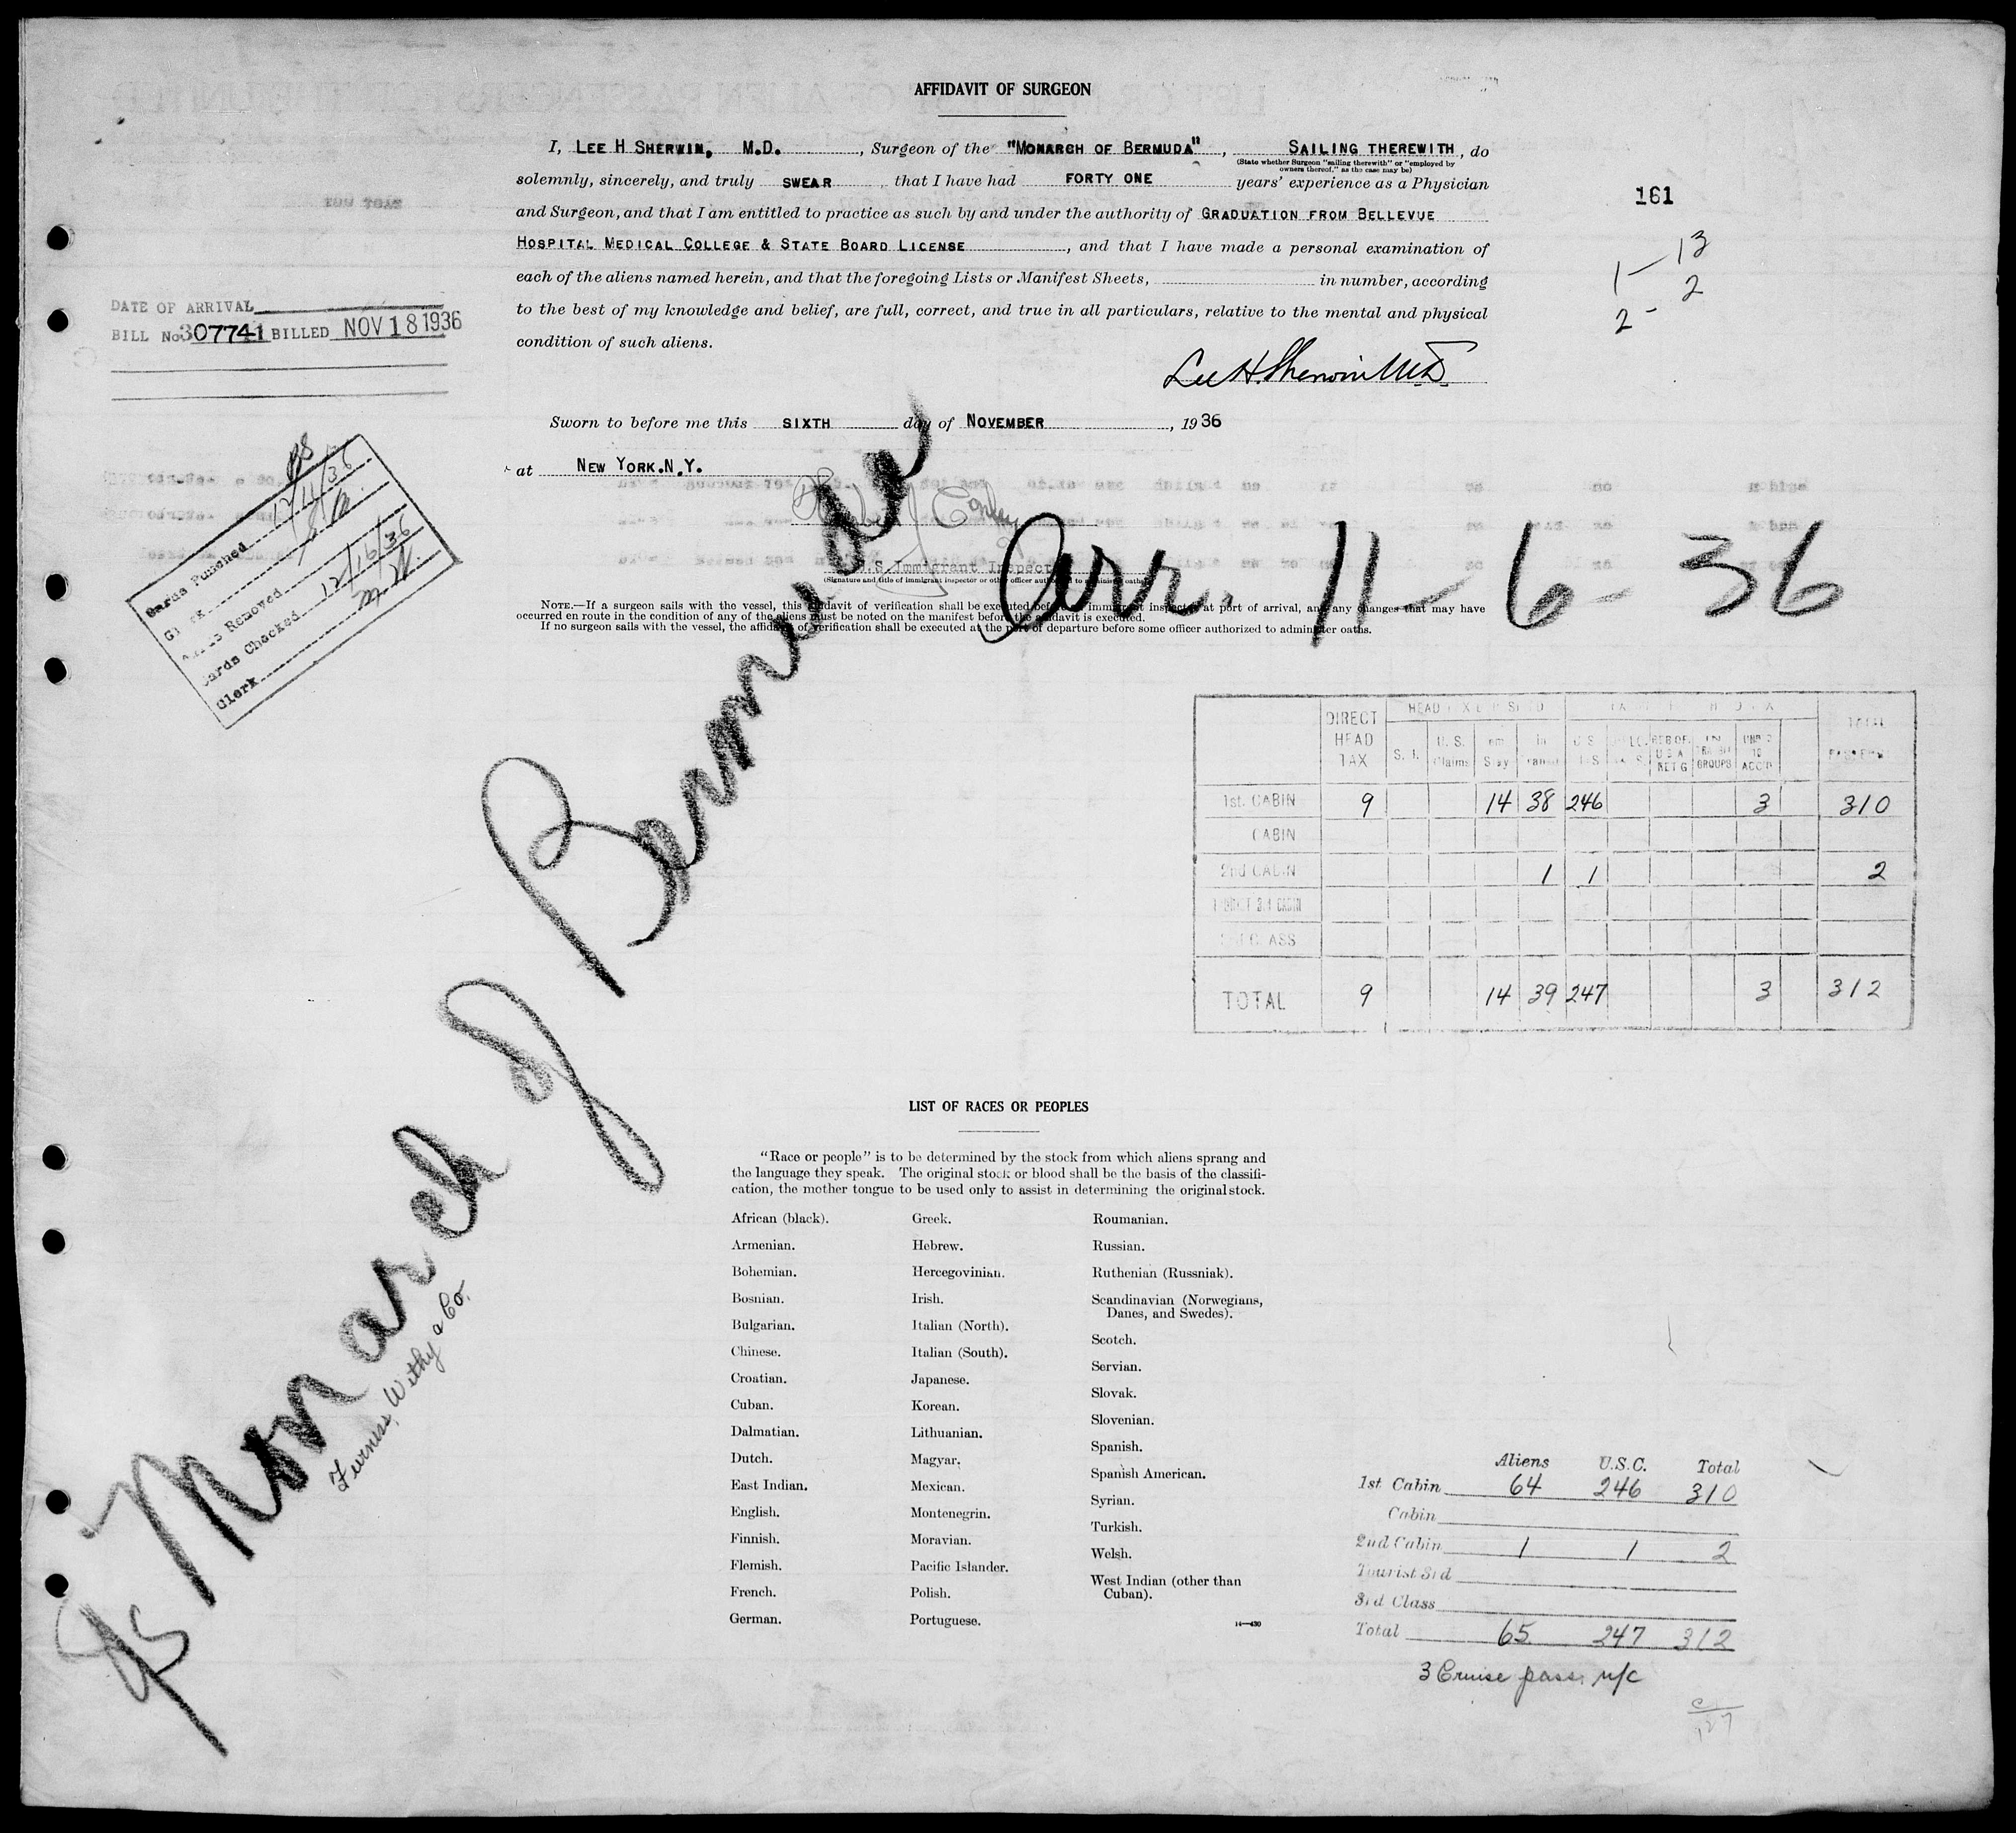 AFFIDAVIT OF SURGEON
I, LEE H SHERWIN, M.D. , Surgeon of the "MONARCH OF BERMUDA" , SAILING THEREWITH , do
(State whether Surgeon "sailing therewith" or "employed by
owners thereof," as the case may be)
solemnly, sincerely, and truly SWEAR , that I have had FORTY ONE years' experience as a Physician
and Surgeon, and that I am entitled to practice as such by and under the authority of GRADUATION FROM BELLEVUE
HOSPITAL MEDICAL COLLEGE & STATE BOARD LICENSE , and that I have made a personal examination of
each of the aliens named herein, and that the foregoing Lists or Manifest Sheets, in number, according
to the best of my knowledge and belief, are full, correct, and true in all particulars, relative to the mental and physical
condition of such aliens.
Lee H. Sherwin M.D.
Sworn to before me this SIXTH day of NOVEMBER , 1936
at NEW YORK.N.Y.
U.S. Immigrant Inspector
(Signature and title of immigrant inspector or other officer authorized to administer oaths)
NOTE.—If a surgeon sails with the vessel, this affidavit of verification shall be executed before immigrant inspector at port of arrival, and any changes that may have
occurred en route in the condition of any of the aliens must be noted on the manifest before the affidavit is executed.
If no surgeon sails with the vessel, the affidavit of verification shall be executed at the port of departure before some officer authorized to administer oaths.
161
1 - 13
2 - 2
DATE OF ARRIVAL
BILL No 307741 BILLED NOV 18 1936
Cards Punched 12/11/36
Clerk
Cards Removed
Cards Checked 12/16/36
Clerk
Arr. 11-6-36
SS Monarch of Bermuda
Furness, Withy & Co.
DIRECT HEAD TAX
S. I.
U. S. Claims
1st. CABIN 9 14 38 246 3 310
CABIN
2nd CABIN 1 1 2
TOTAL 9 14 39 247 3 312
LIST OF RACES OR PEOPLES
"Race or people" is to be determined by the stock from which aliens sprang and
the language they speak. The original stock or blood shall be the basis of the classifi-
cation, the mother tongue to be used only to assist in determining the original stock.
African (black).
Armenian.
Bohemian.
Bosnian.
Bulgarian.
Chinese.
Croatian.
Cuban.
Dalmatian.
Dutch.
East Indian.
English.
Finnish.
Flemish.
French.
German.
Greek.
Hebrew.
Hercegovinian.
Irish.
Italian (North).
Italian (South).
Japanese.
Korean.
Lithuanian.
Magyar.
Mexican.
Montenegrin.
Moravian.
Pacific Islander.
Polish.
Portuguese.
Roumanian.
Russian.
Ruthenian (Russniak).
Scandinavian (Norwegians,
Danes, and Swedes).
Scotch.
Servian.
Slovak.
Slovenian.
Spanish.
Spanish American.
Syrian.
Turkish.
Welsh.
West Indian (other than
Cuban).
14—430
Aliens U.S.C. Total
1st Cabin 64 246 310
Cabin
2nd Cabin 1 1 2
Tourist 3rd
3rd Class
Total 65 247 312
3 Cruise pass. n/c